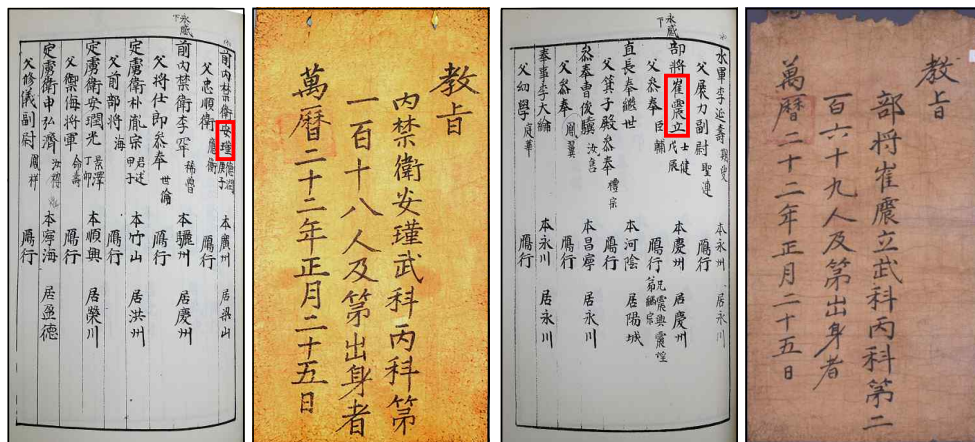 前內禁衛安瑾 庚子 本廣州 居梁山
父忠順衛 鴈行
前內禁衛李 本驪州 居慶州
父將仕郎叅奉 世倫 鴈行
定虜衛朴胤宗 君述 甲子 本竹山 居洪州
父前部將 海 鴈行
定虜衛安潤光 景澤 丁卯 本順興 居榮川
父禦海將軍 命壽 鴈行
定虜衛申弘濟 本寧海 居盈德
父修義副尉 鳳祥 鴈行
教旨
內禁衛安瑾武科丙科第
一百十八人及第出身者
萬曆二十二年正月二十五日
水軍李延壽 本永川 居永川
父展力副尉 聖連 鴈行
部將崔震立 士健 戊辰 本慶州 居慶州
父叅奉 臣輔 鴈行 兄震興 震煌 弟繼宗
直長奉繼世 本河陰 居陽城
父箕子殿叅奉 禮宗 鴈行
叅奉曹俊驥 本昌寧 居永川
父叅奉 鳳翼 鴈行
奉事李大綸 本永川 居永川
父幼學 庭華 鴈行
教旨
部將崔震立武科丙科第二
百六十九人及第出身者
萬曆二十二年正月二十五日